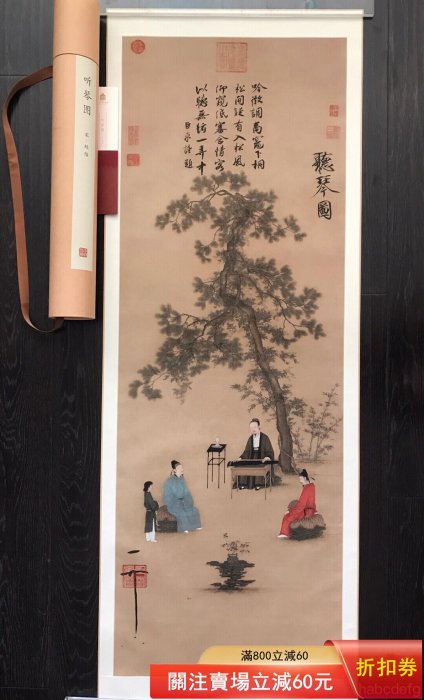 听琴图
宋·赵佶
聽琴圖
吟徵調商竈下桐
松間疑有入松風
仰窺低審含情客
以聽無絃一弄中
臣京謹題
滿800立減60
關注賣場立減60元
折扣券
habcdefg